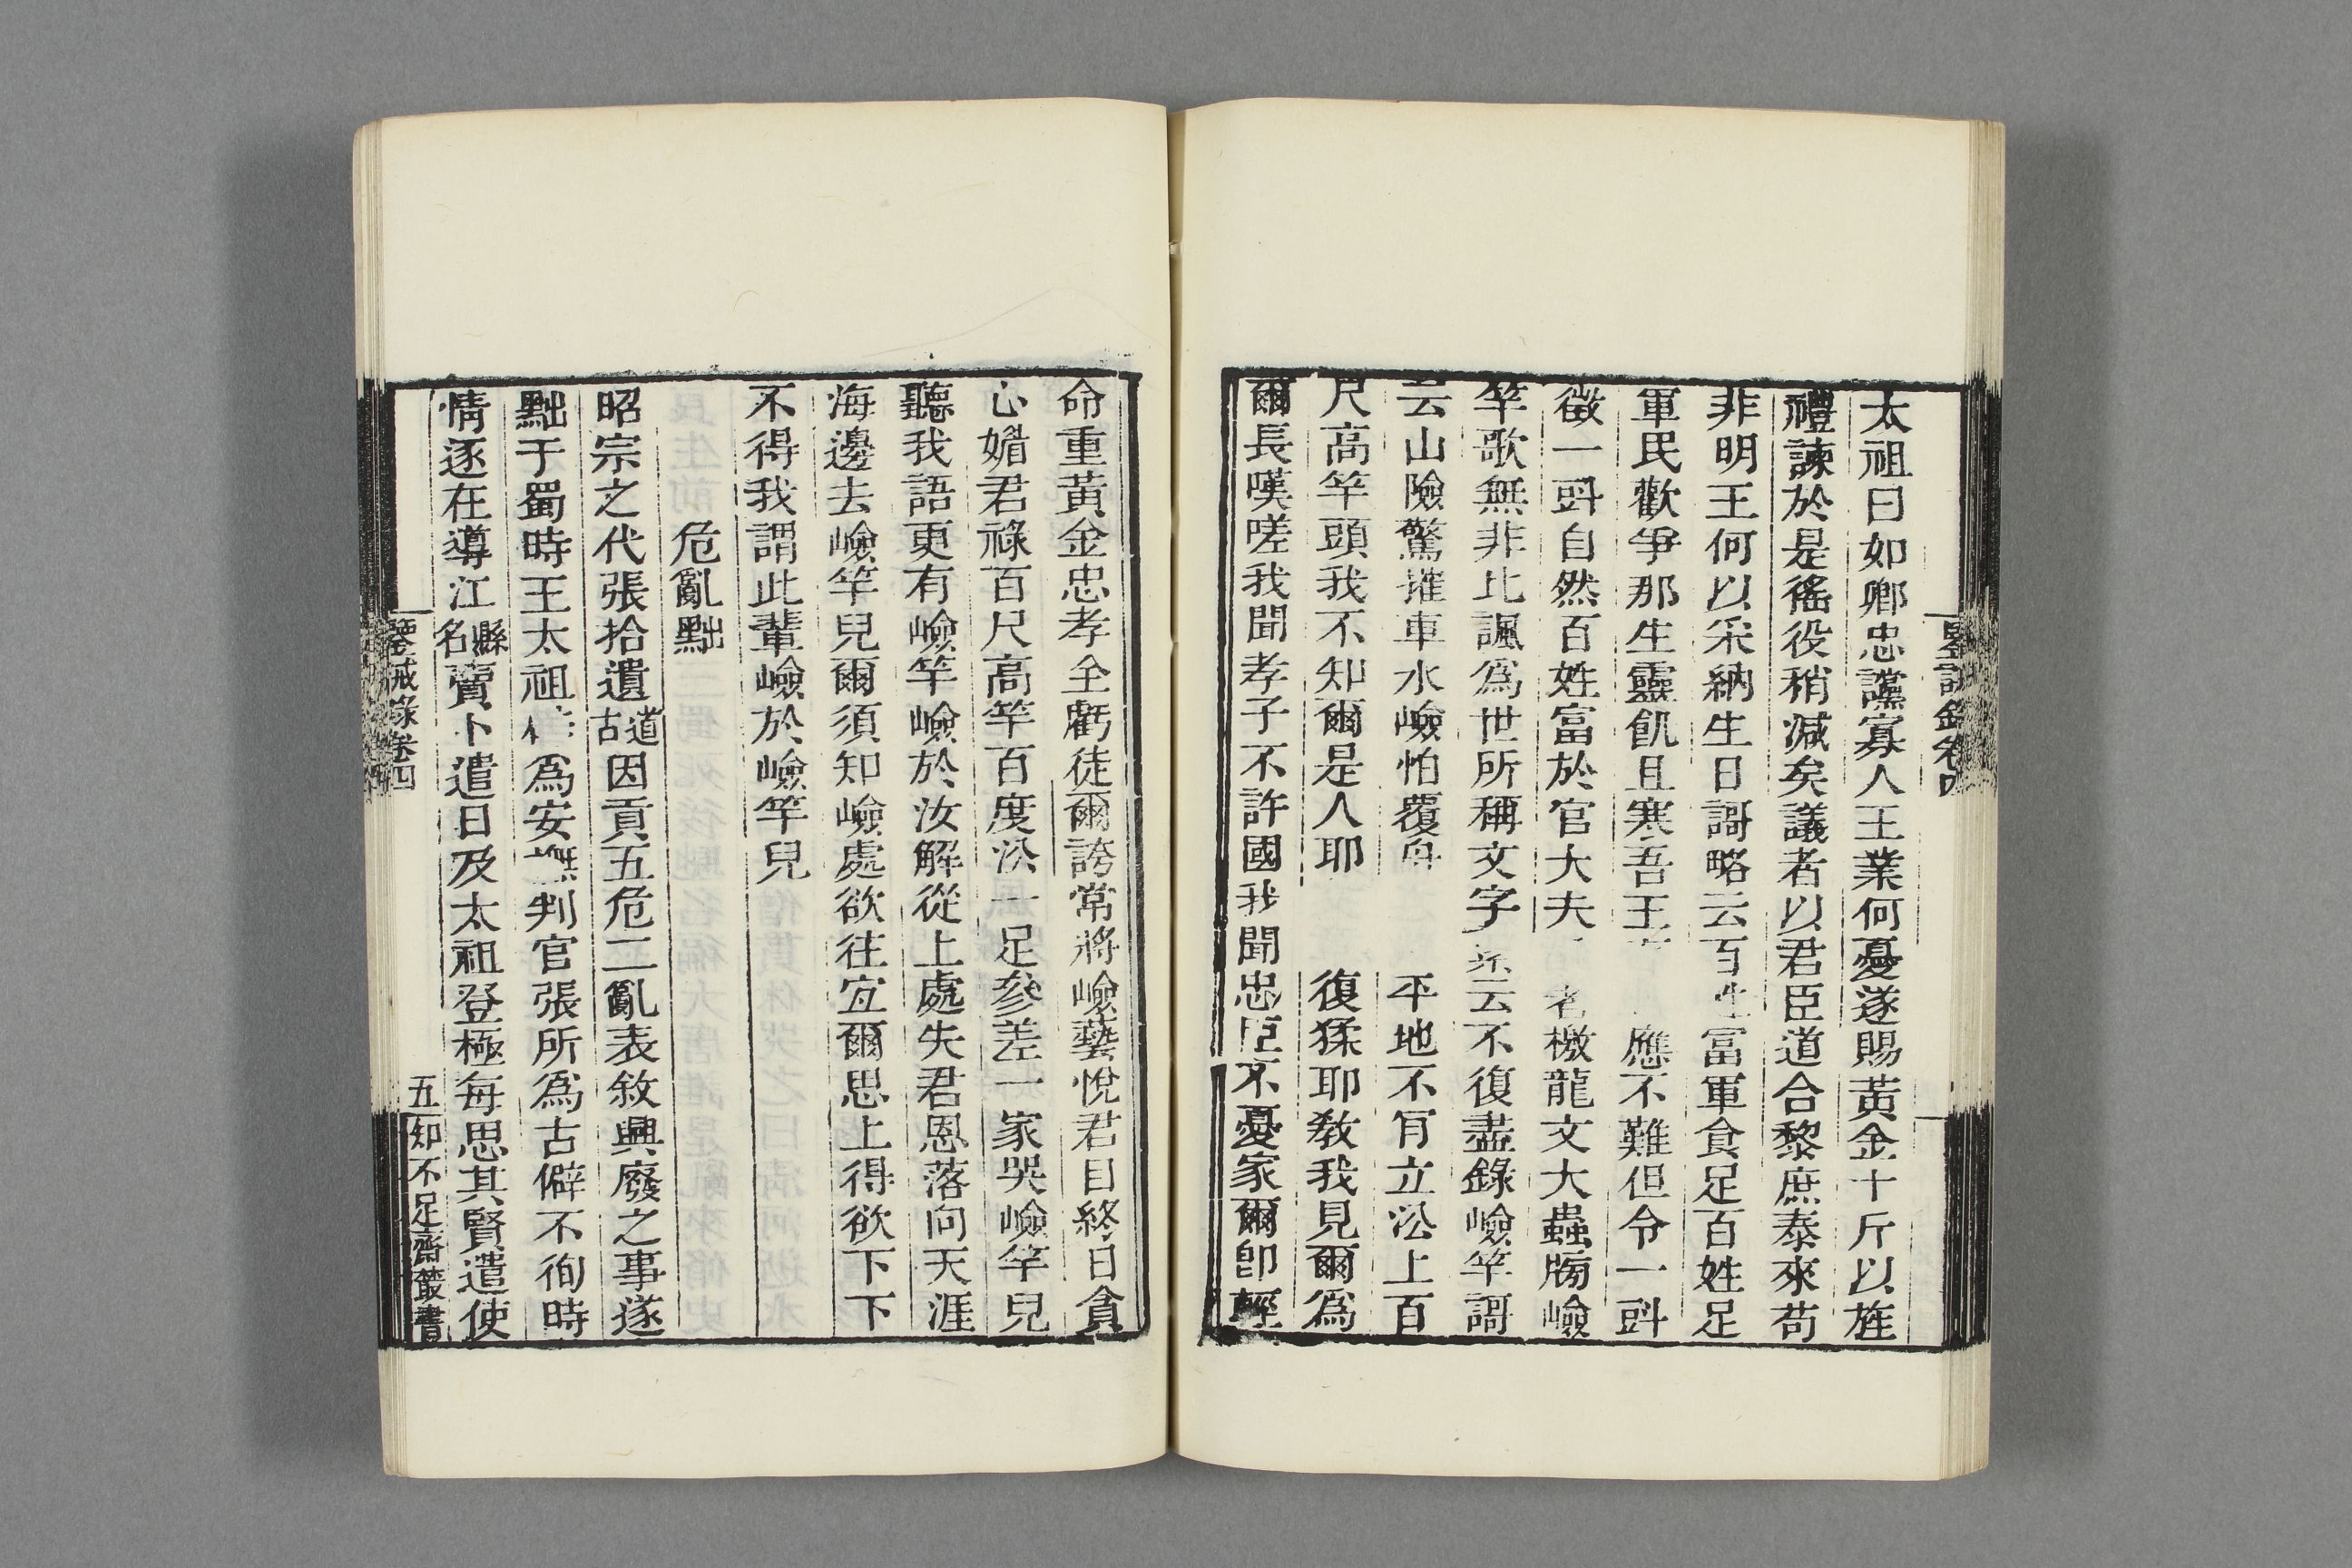 太祖曰如卿忠讜寡人王業何憂遂賜黃金十斤以旌
禮諫於是徭役稍減矣議者以君臣道合黎庶泰來苟
非明王何以采納生日謌略云百姓富軍食足百姓足
軍民歡爭那生靈飢且寒吾王 應不難但令一㪷
徵一㪷自然百姓富於官大夫 者檄龍文大蟲牓嶮
竿歌無非比諷爲世所稱文字 云不復盡錄嶮竿謌
云山險驚摧車水嶮怕覆舟 平地不肎立㳂上百
尺高竿頭我不知爾是人耶 復猱耶敎我見爾爲
爾長嘆嗟我聞孝子不許國我聞忠臣不憂家爾卽輕
命重黃金忠孝全虧徒爾誇常將嶮藝悅君目終日貪
心媚君祿百尺高竿百度㳂一足參差一家哭嶮竿兒
聽我語更有嶮竿嶮於汝解從上處失君恩落向天涯
海邊去嶮竿兒爾須知嶮處欲往宐爾思上得欲下下
不得我謂此輩嶮於嶮竿兒
危亂黜
昭宗之代張拾遺道古因貢五危二亂表敘興廢之事遂
黜于蜀時王太祖 爲安撫判官張所爲古僻不徇時
情逐在導江縣名賣卜遣日及太祖登極每思其賢遣使
鑒誡錄卷四
五
知不足齋叢書